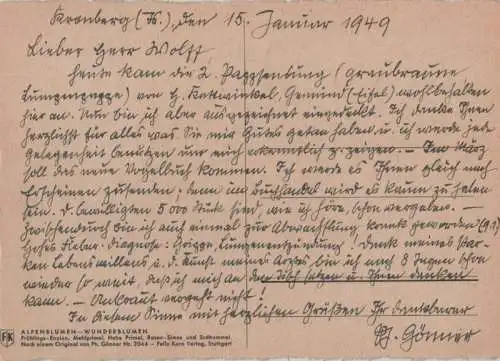 Kronberg (Ts.), den 15. Januar 1949
Lieber Herr Wolff,
heute kam die 2. Pappsendung (graubraune
Lumpenpappe) von H. Kattwinkel, Gemünd (Eifel) wohlbehalten
hier an. Nun bin ich aber ausgezeichnet eingedeckt. Ich danke Ihnen
herzlichst für alles was Sie mir Gutes getan haben u. ich werde jede
Gelegenheit benützen und mich erkenntlich zu zeigen. — Im März
soll das neue Vogelbuch kommen. Ich werde es Ihnen gleich nach
Erscheinen zusenden; denn im Buchhandel wird es kaum zu haben
sein. D. bewilligten 5000 Stück sind, wie ich höre, schon vergeben. —
Zwischendurch bin ich auch einmal zur Abwechslung krank geworden
hohes Fieber. Diagnose: Grippe, Lungenentzündung! Dank meines star-
ken Lebenswillens u. d. Kunst meines Arztes bin ich nach 8 Tagen schon
wieder so weit, daß ich mich an den Tisch setzen u. Ihnen danken
kann. — Unkraut vergeht nicht!
In diesem Sinne mit herzlichen Grüßen Ihr dankbarer
Ph. Gönner
FK
ALPENBLUMEN — WUNDERBLUMEN
Frühlings-Enzian, Mehlprimel, Habs Primel, Rasen-Simse und Steinhummel
Nach einem Original von Ph. Gönner Nr. 2044 - Felix Korn Verlag, Stuttgart